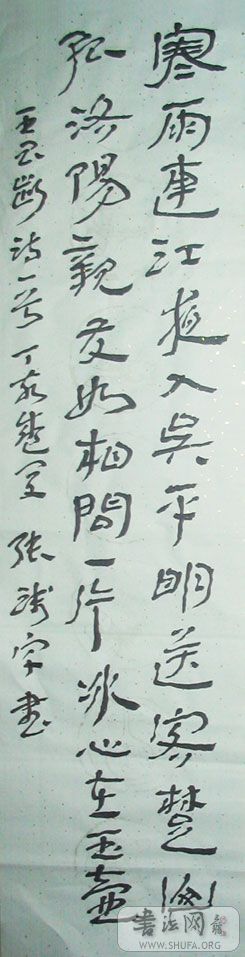 寒雨連江夜入吳平明送客楚山
孤洛陽親友如相問一片冰心在玉壺
王昌齡詩一首丁亥 張 宇書
書法网
WWW.SHUFA.ORG